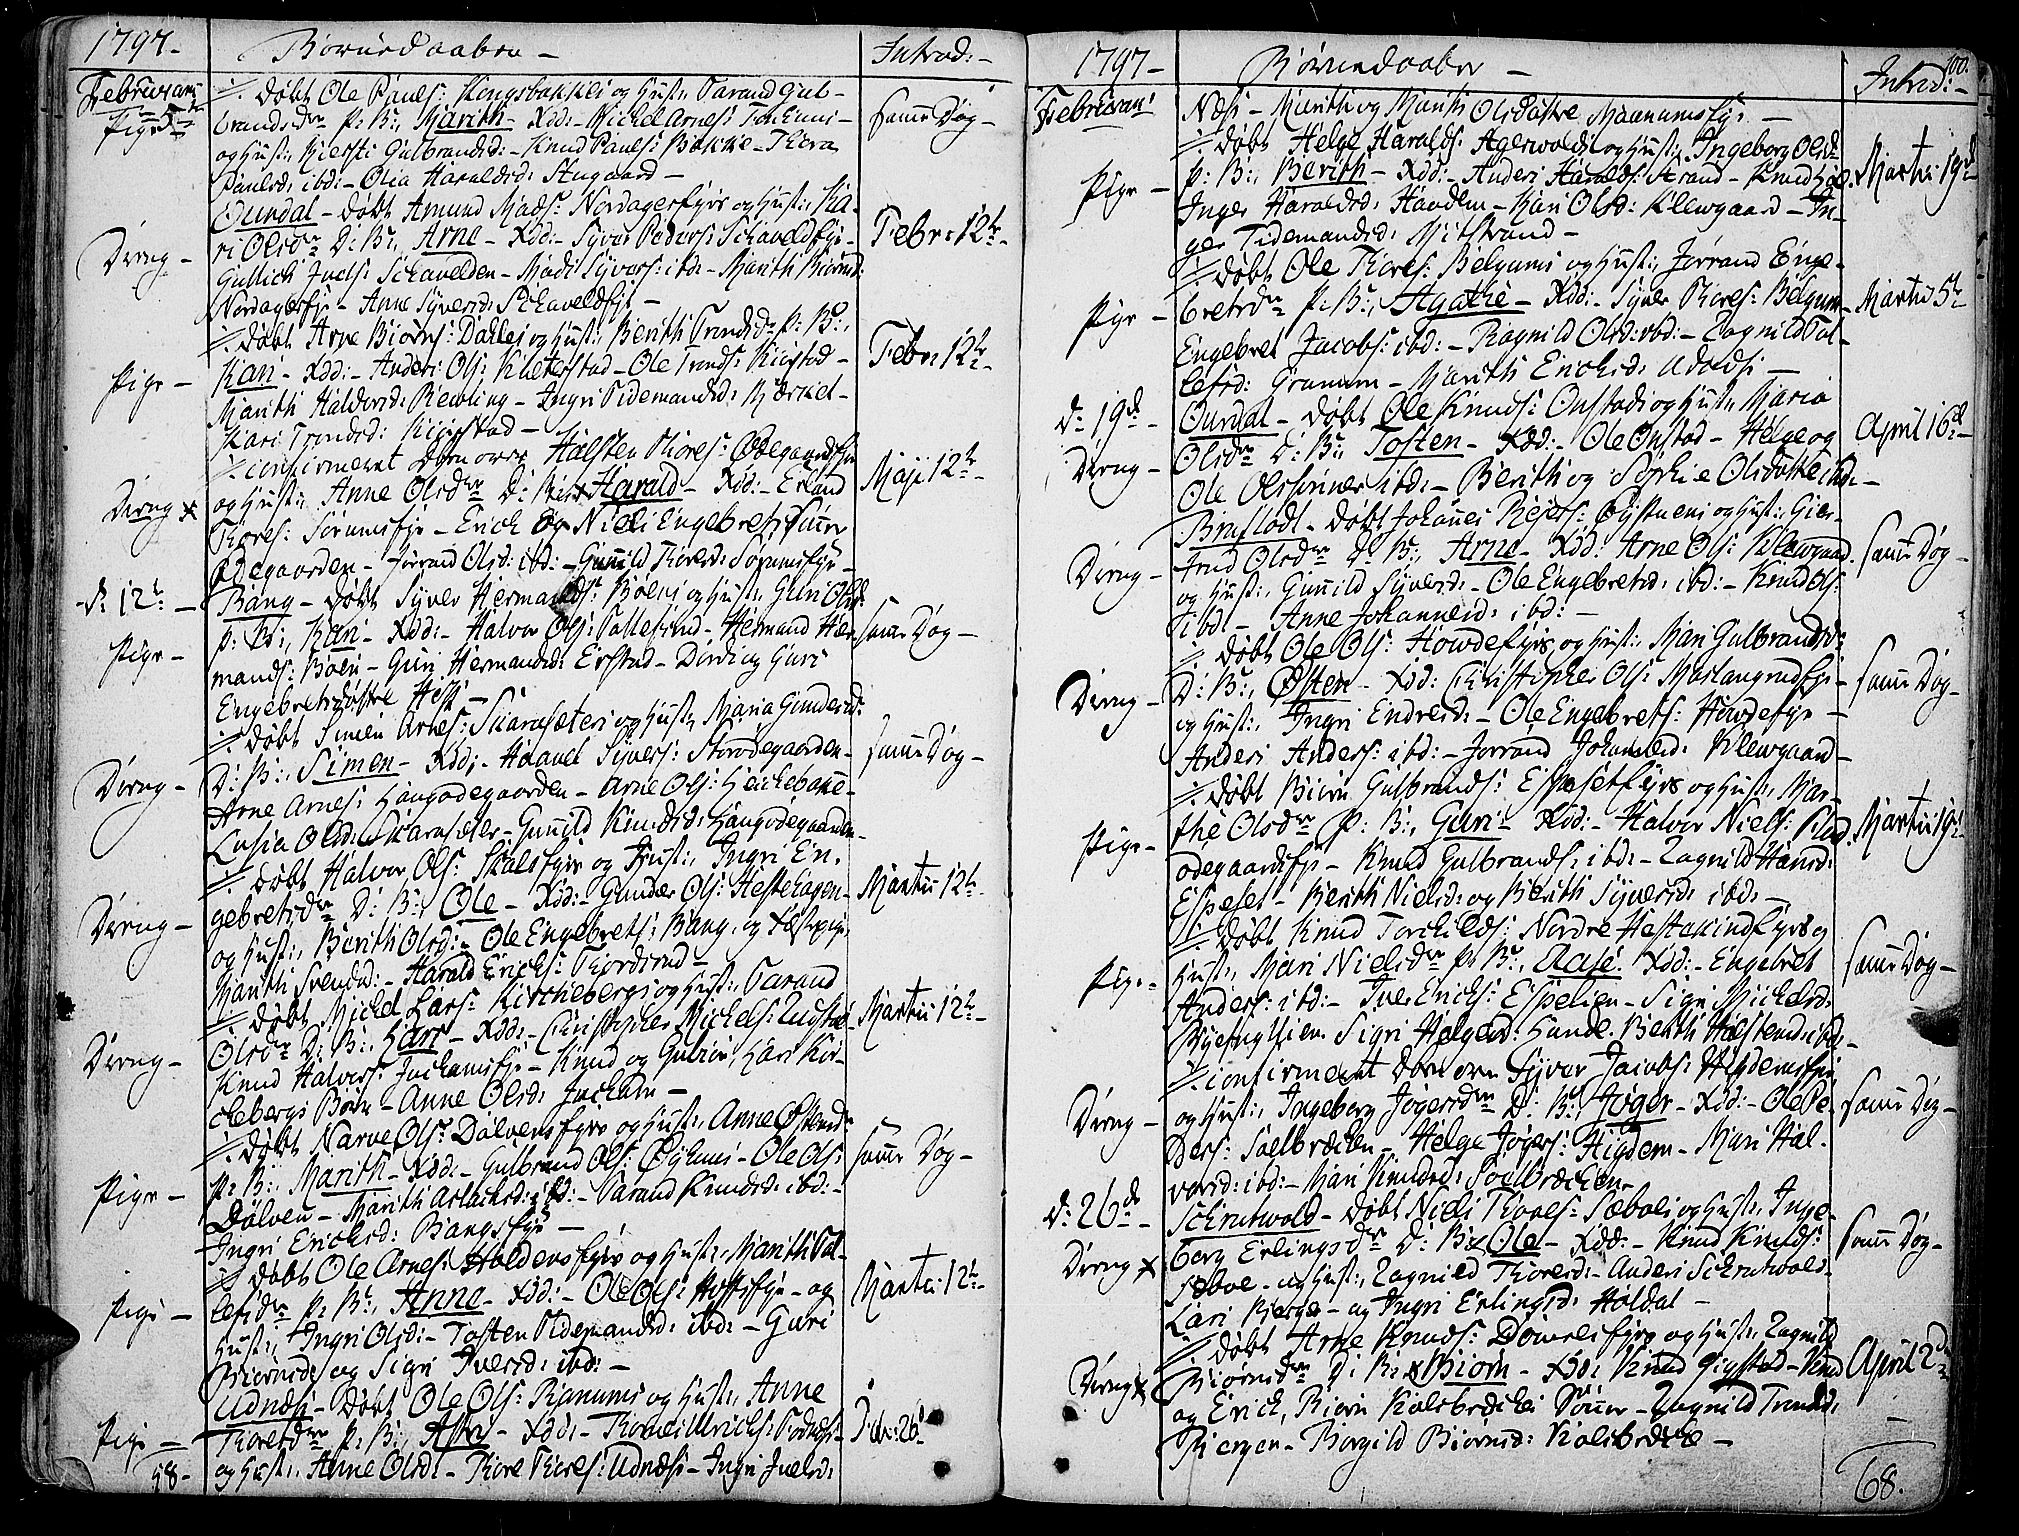 1797-
Børnedaaben -
Introd: -
Februarii
Pige 5te
// døbt Ole Pauls: Kongsbakkes og Hust: Tarand Gul-
brandsdr P: B: Marith - Xdd: - Michel Arnes:
og Hust: Kiersti Gulbrandsd: - Knud Pauls: Bakke - Thora
Paulsd: ibd: - Olia Haraldsd: Augaard -
samme Dag -
Dreng -
Ourdal - døbt Amund Mads: Nordagersfyrs og Hust: Ka-
ri Olsdr D: B: Arne - Xdd: - Syver Peders: Schaveldfyr -
Gullich Juels: Schavelden - Mads Syvers: ibd: - Marith Biørnsd:
Nordagerfyr - Anne Syversd: Schaveldfyr -
Febr: 12te -
Pige -
// døbt Arne Biørns: Dalles og Hust: Berith Trondsdr P: B:
Kari - Xdd: - Anders Ols: Klætestad - Ole Tronds: Kiørstad -
Marith Haldorsd: Revling - Ingri Tidemandsd: Kjærket -
Kari Trondsd: Kiørstad -
Febr: 12te -
Dreng x
// confirmeret Døren over Halsten Thores: Ødegaardsfyr
og Hust: Anne Olsdr D: B: x Harald - Xdd: - Erland
Thores: Sørumsfyr - Erich og Niels Engebrets: Sønner
Ødegaarden - Jørrand Olsd: ibd: - Gunild Thoresd: Sørumsfyr -
Maji 12te -
d: 12te -
Pige -
Bang - døbt Syver Hermands: Bøens og Hust: Guri Olsd:
P: B: Kari - Xdd: - Halvor Ols: Tollefsrud - Hermand Her-
mands: Bøen - Guri Hermandsd: Erstad - Dordi og Guri
Engebretsdøttre Hest -
samme Dag -
Dreng -
// døbt Simen Arnes: Skarasæters og Hust: Maria Gundersd:
D: B: Simen - Xdd: - Haavel Syvers: Storødegaarden -
Arne Arnes: Haugødegaarden - Arne Ols: Henchebakke -
Lusia Olsd: Skarasæter - Gunild Knudsd: Haugødegaarden -
samme Dag -
Dreng -
// døbt Halvor Ols: Skalsfyrs og Hust: Ingri En-
gebretsdr D: B: Ole - Xdd: - Gunder Ols: Hestehagen -
og Hust: Berith Olsd: - Ole Engebrets: Bang, og Fæstepige
Marith Svendsd: - Harald Erichs: Thordsrud -
Martii 12te -
Dreng -
// døbt Michel Lars: Kirchebergs og Hust: Tarand
Olsdr D: B: Lars - Xdd: - Christopher Michels:
Knud Halvors: Juchamsfyr - Knud og Gulov, Lars Kir-
chebergs Børn - Anne Olsd: Jucham -
Martii 12te -
Pige -
// døbt Narve Ols: Dølvensfyrs og Hust: Anne Østensd:
P: B: Marith - Xdd: - Gulbrand Ols: Øyhuus - Ole Ols:
Dølven - Marith Aslachsd: ibd: - Tarand Knudsd: ibd: -
Ingri Erichsd: Bangsfyr -
samme Dag -
Pige -
// døbt Ole Arnes: Holdensfyrs og Hust: Marith Tol-
lefsdr P: B: Anne - Xdd: - Ole Ols: Hoffsfyr - og
Hust: Ingri Olsd: - Tosten Tidemands: ibd: - Guri
Biørnsd: og Sigri Iversd: ibd: -
Martii 12te -
Pige -
Udnæs - døbt Ole Ols: Ranums og Hust: Anne
Thoresdr P: B: Astri - Xdd: - Thomes Ulrichs: Fodnæs -
og Hust: Anne Olsd: - Thore Thores: Udnæs - Ingri Juelsd:
Febr: 26d
58-
1797-
Børnedaaben -
Introd: -
100.
Februarii
Næs - Marith og Marith Olsdøttre Maanumsfyr -
Pige -
// døbt Helge Haralds: Agervolds og Hust: Ingeborg Olsd:
P: B: Berith - Xdd: - Anders Haralds: Strand - Knud
Inger Haraldsd: Haadem - Kari Olsd: Klewgaard - In-
ger Tidemandsd: Mitstrand -
Martii 19de
Pige -
// døbt Ole Thores: Belgums og Hust: Jørrand Enge-
bretsdr P: B: Agathe - Xdd: - Syver Thores: Belgum -
Engebret Jacobs: ibd: - Ragnild Olsd: ibd: - Ragnild Tol-
lefsd: Granum - Marith Erichsd: Udnæs -
Martii 5te
d: 19de -
Dreng -
Ourdal - døbt Ole Knuds: Onstads og Hust: Maria
Olsdr D: B: Tosten - Xdd: - Ole Onstad - Helge og
Ole Olssønner ibd: - Berith og Sophie Olsdøttre ibd: -
April 16de -
Dreng -
Bruflodt - døbt Johannes Rejers: Øystuens og Hust: Gier-
trud Olsdr D: B: Arne - Xdd: Arne Ols: Klewgaard
og Hust: Gunild Syversd: - Ole Engebrets: ibd: - Knud Ols:
ibd: - Anne Johannesd: ibd: -
samme Dag -
Dreng -
// døbt Ole Ols: Howdefyrs og Hust: Mari Gulbrandsd:
D: B: Østen - Xdd: Christopher Ols: Maslangrudfyr -
og Hust: Ingri Endresd: - Ole Engebrets: Howdefyr -
Anders Anders: ibd: - Jorrand Johannesd: Klewgaard -
samme Dag -
Pige -
// døbt Biørn Gulbrands: Espesetfyrs og Hust: Mar-
the Olsdr P: B: Guri - Xdd: - Halvor Niels:
ødegaardsfyr - Knud Gulbrands: ibd: - Ragnild Hansd:
Espeset - Berith Nielsd: og Berith Syversd: ibd: -
Martii 19de -
Pige -
// døbt Knud Torchilds: Nordre Hestekindfyrs og
Hust: Mari Nielsdr P: B: Aase. Xdd: - Engebret
Anders: ibd: - Iver Erichs: Espelien - Sigri Michelsd:
Sigri Helgesd: Hande. Berith Halstensd: ibd: -
samme Dag -
Dreng -
// confirmeret Døren over Syver Jacobs: Higdemsfyr
og Hust: Ingeborg Jøgersdr D: B: Jøger - Xdd: - Ole Pe-
ders: Soelbrækken - Helge Jøgers: Higdem - Mari Hal-
vorsd: ibd: - Mari Knudsd: Soelbrækken -
samme Dag -
d: 26de -
Dreng x
Schrutvold - døbt Niels Thores: Sæboes og Hust: Inge-
borg Erlingsdr D: B: x Ole - Xdd: - Knud Knuds:
Sæboe - og Hust: Ragnild Thoresd: - Anders Schrutvold -
Lars Bierge - og Ingri Erlingsd: Holdal -
samme Dag -
Dreng x
// døbt Arne Knuds: Døvrelsfyrs og Hust: Ragnild
Biørnsdr D: B: x Biørn - Xdd: Knud Gigstad - Knud
og Erich, Biørn Kolsbrækkes Sønner - Ragnild Trondsd:
Biergen - Borgild Biørnsd: Kolsbrække -
April 2den -
68.